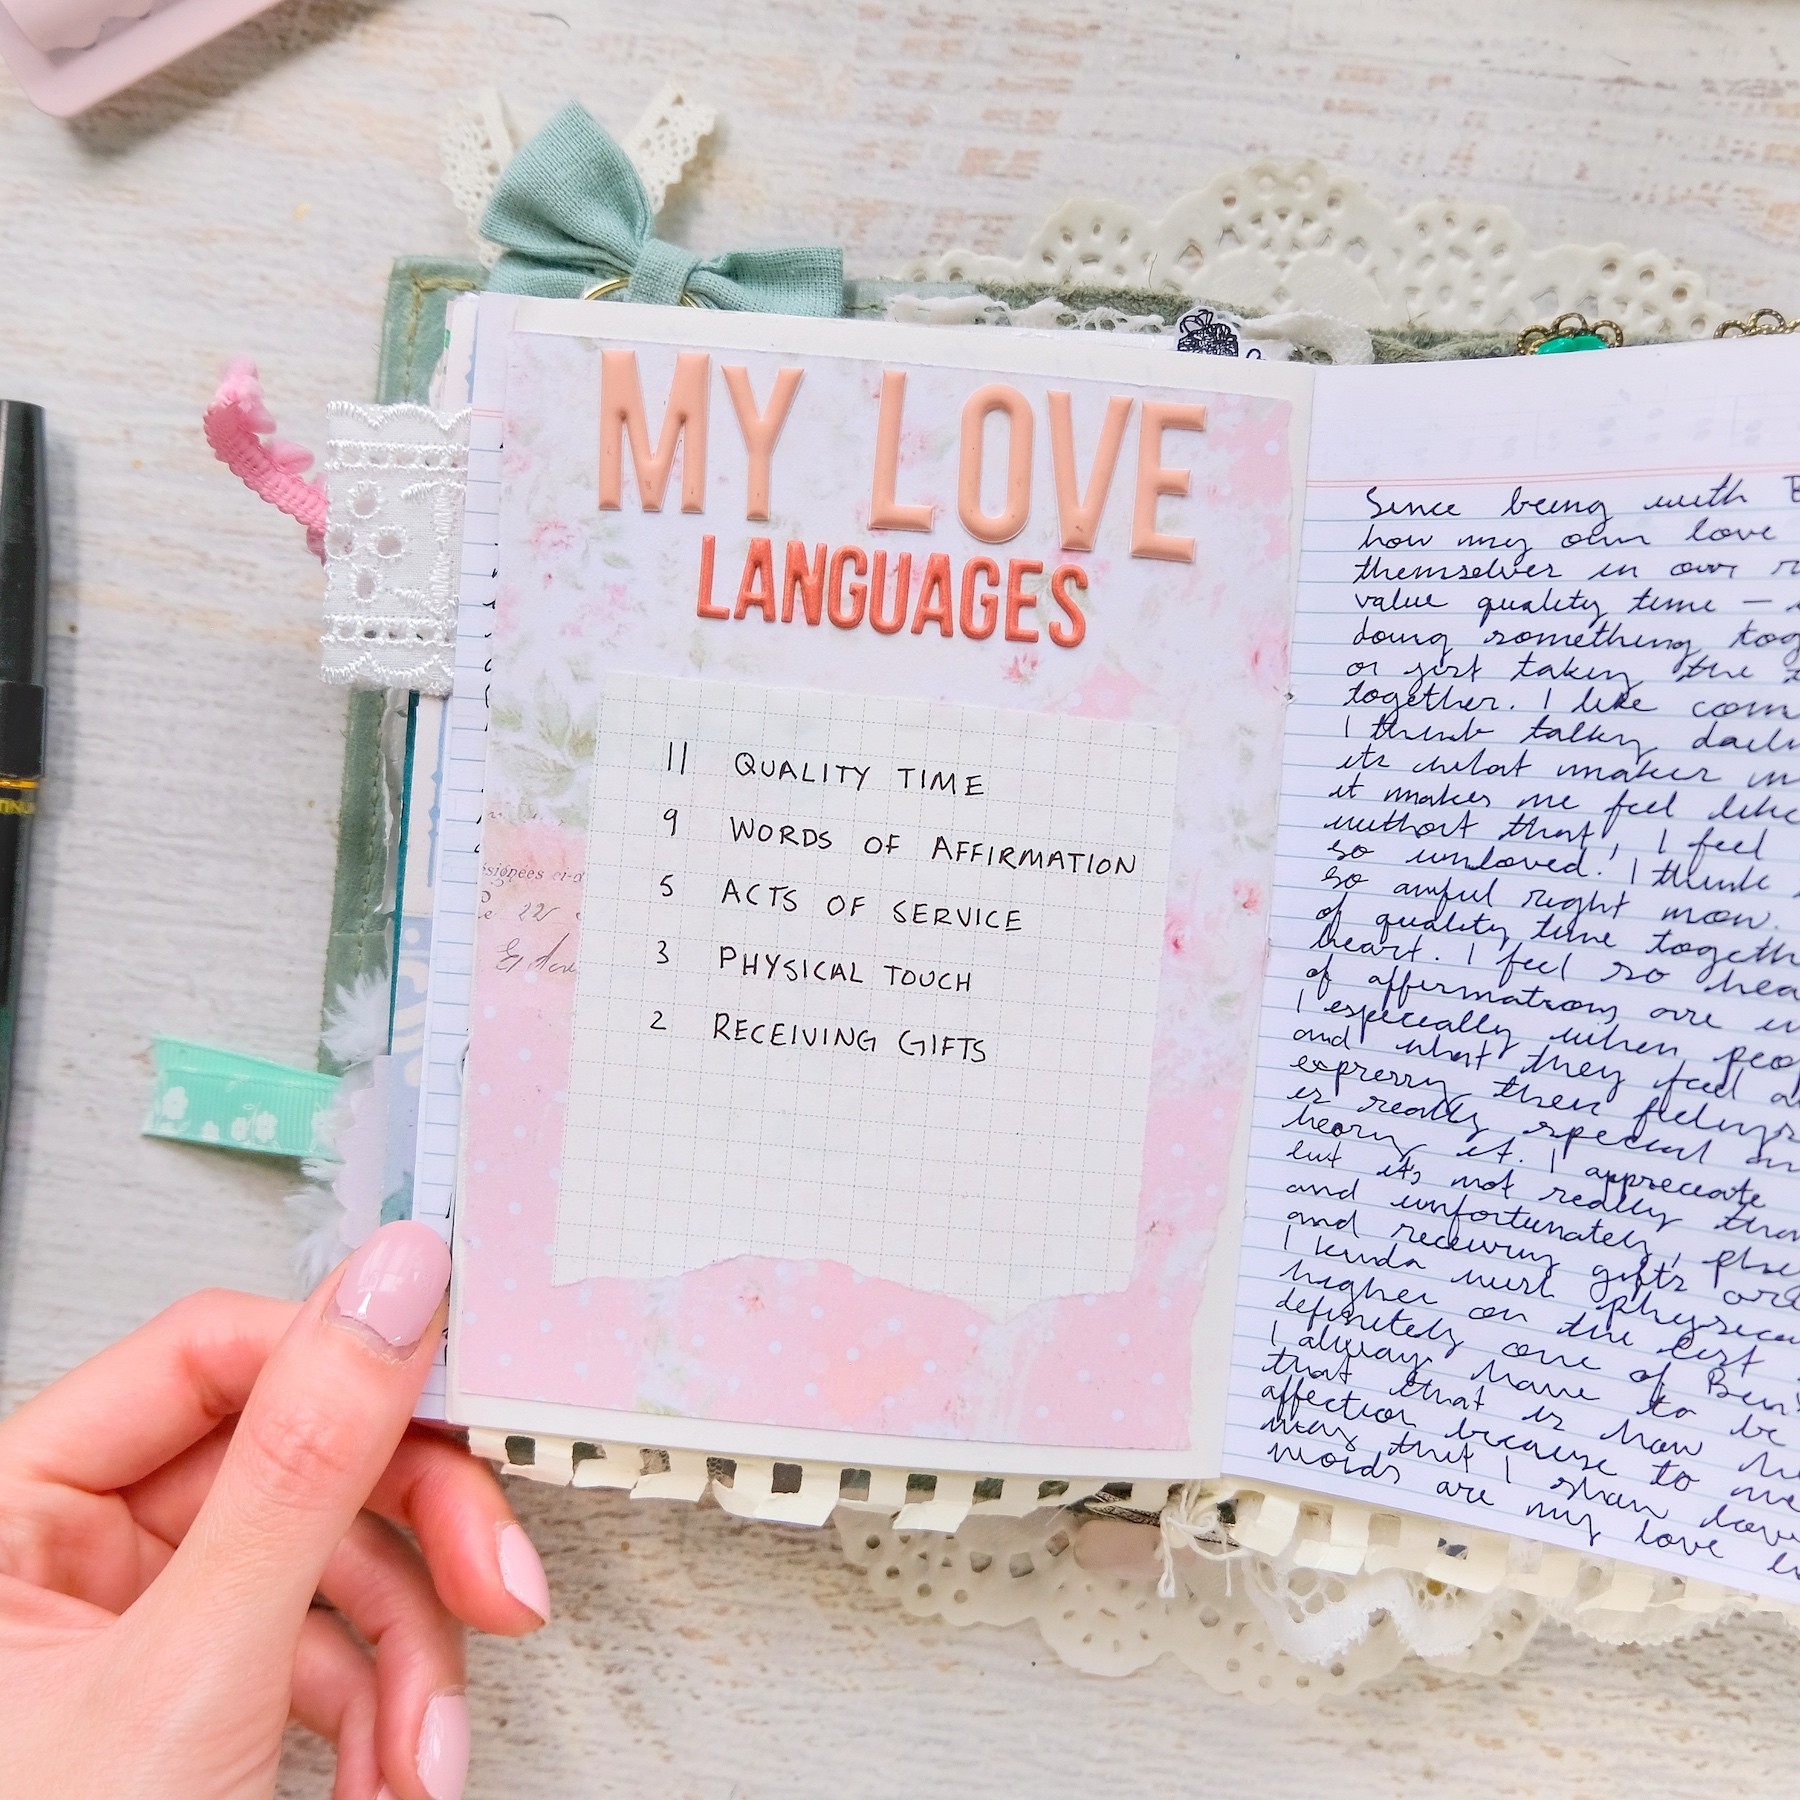 MY LOVE
LANGUAGES
11 QUALITY TIME
9 WORDS OF AFFIRMATION
5 ACTS OF SERVICE
3 PHYSICAL TOUCH
2 RECEIVING GIFTS
Since being with B
how my own love
themselves in our r
value quality time —
doing something tog
or just taking the t
together. I like com
I think talking daily
its what makes m
it makes me feel like
without that, I feel
so unloved! I think
so awful right now.
of quality time togeth
heart. I feel so hea
of affirmations are
I especially when peo
and what they feel a
expressing their feelings
is really special an
hearing it. I appreciate
but it's not really
and unfortunately, phys
and receiving gifts are
I kinda wish physica
higher on the list
definitely one of Ben's
I always have to be
that that is how he
affection because to me
way that I show love
words are my love
TINUM